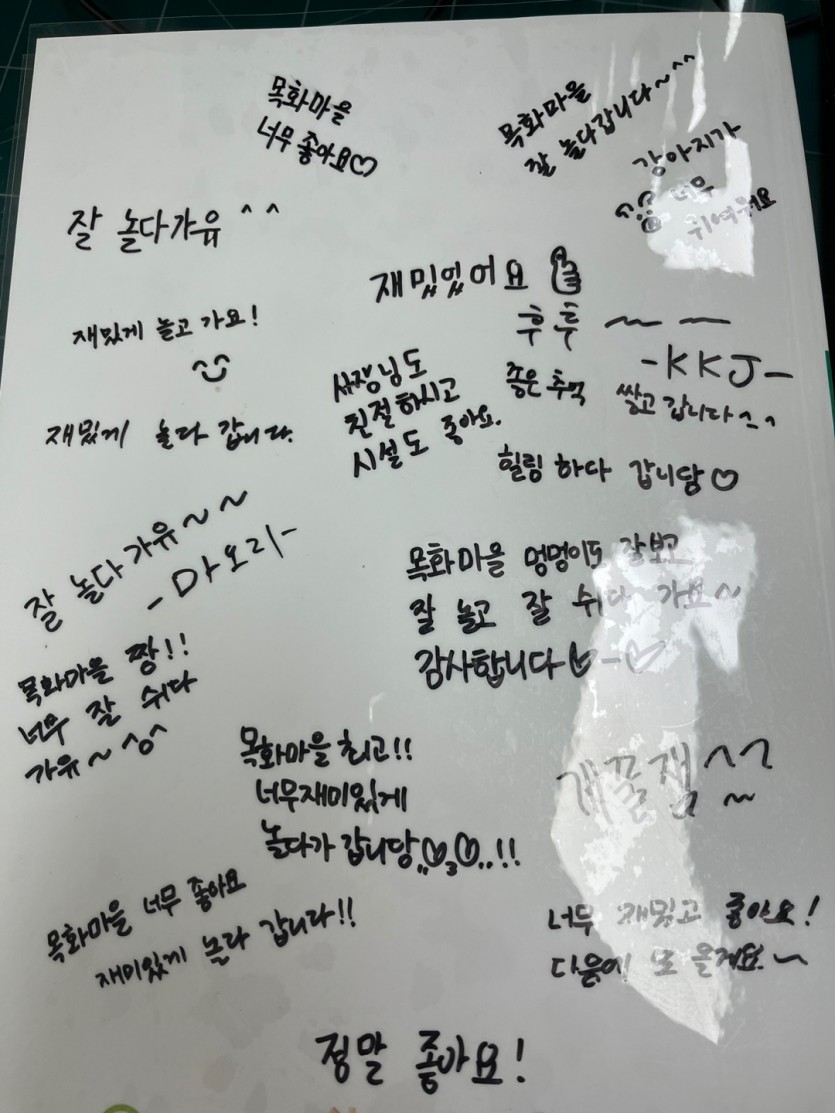 목화마을
너무 좋아요♡
목화마을
잘 놀다갑니다~^^
강아지가
너무
귀여워요
잘 놀다가유 ^^
재밌었어요
후투 ~ ~
-KKJ-
재밌게 놀고 가요!
사장님도
친절하시고
시설도 좋아요.
좋은 추억 쌓고 갑니다^^
재밌게 놀다 갑니다.
힐링 하다 갑니당♡
잘 놀다가유~~
-마오리-
목화마을 멍멍이도 잘보고
잘 놀고 잘 쉬다 가요~
감사합니다♡-♡
목화마을 짱!!
너무 잘 쉬다
가유~^o^
목화마을 최고!!
너무재미있게
놀다가 갑니당,,♡3♡..!!
개꿀잼^^
~
목화마을 너무 좋아요
재미있게 놀다 갑니다!!
너무 재밌고 좋아요!
다음에 또 올게요.~
정말 좋아요!